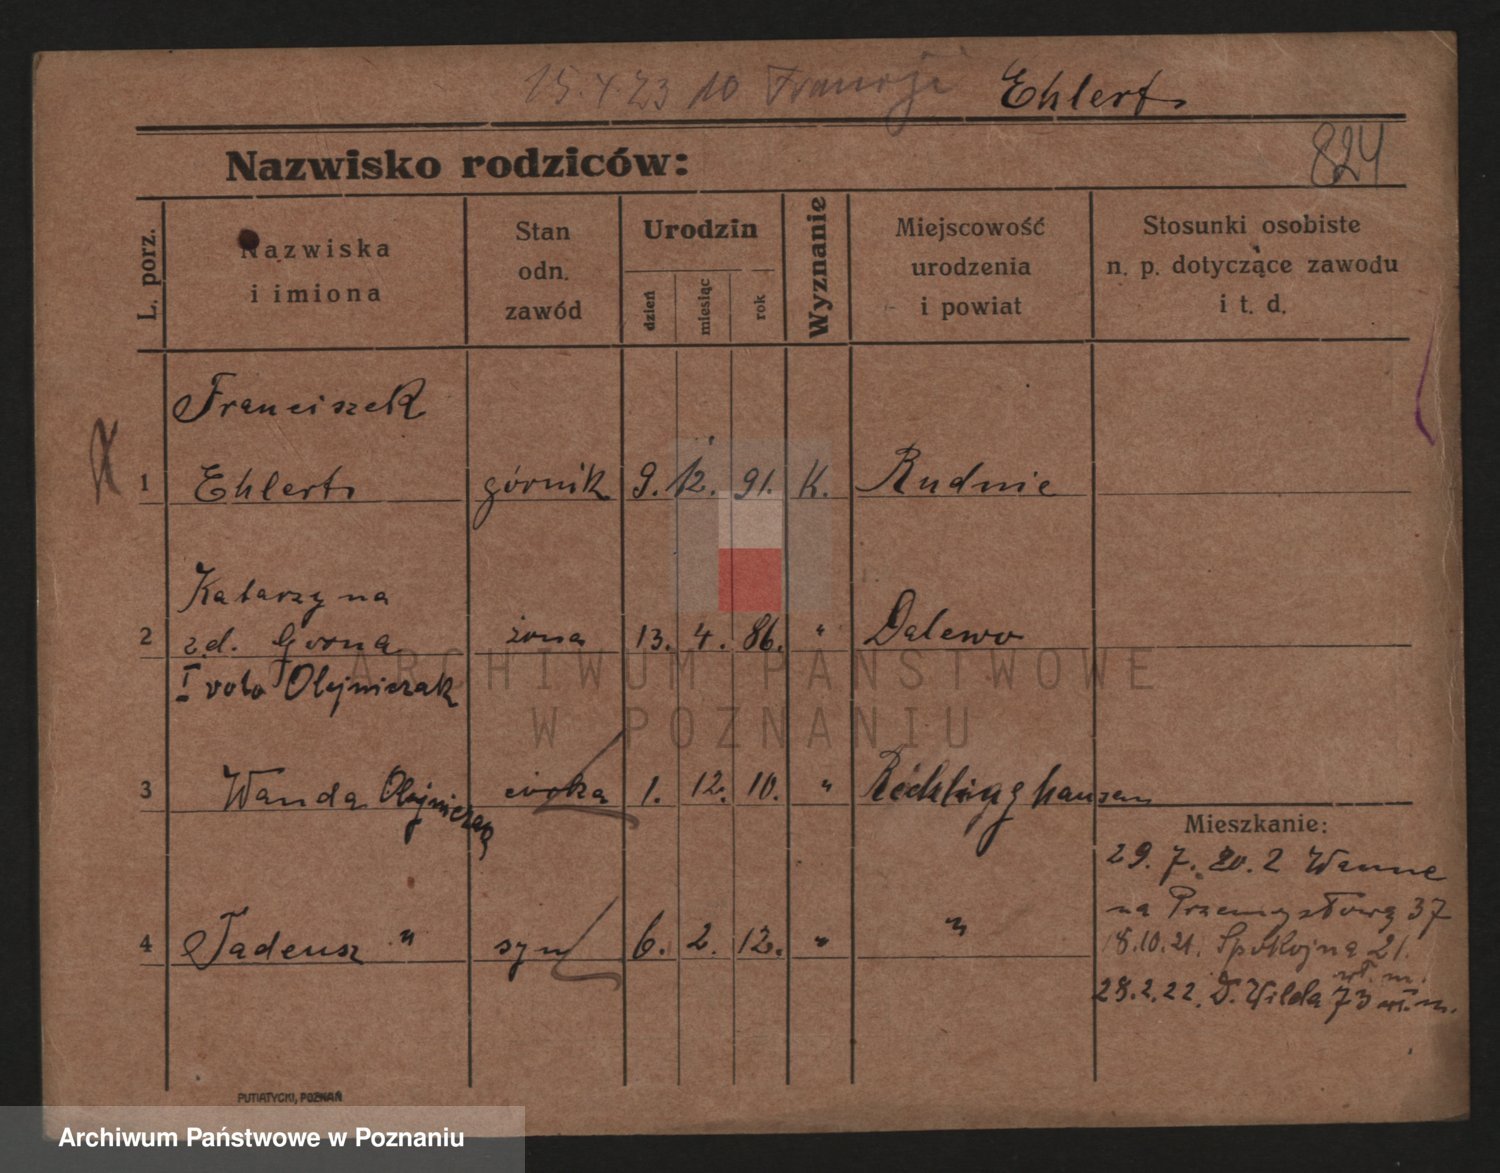 15.4.23 do Francji Ehlert
824
Nazwisko rodziców:
L. porz.
Nazwiska
i imiona
Stan
odn.
zawód
Urodzin
dzień
miesiąc
rok
Wyznanie
Miejscowość
urodzenia
i powiat
Stosunki osobiste
n. p. dotyczące zawodu
i t. d.
Franciszek
1 Ehlert górnik 9. 12. 91. K. Rudnie
Katarzyna
2 z d. Górna żona 13. 4. 86. " Dalewo
I voto Olejniczak
3 Wanda Olejniczak córka 1. 12. 10. " Récklinghausen
4 Tadeusz " syn 6. 2. 12. " "
Mieszkanie:
29. 7. 20. z Wanne
na Przemysłową 37
18.10.21. Spokojna 21.
28.2.22. D. Wilda 73
PUTIATYCKI, POZNAŃ
ARCHIWUM PAŃSTWOWE
W POZNANIU
Archiwum Państwowe w Poznaniu